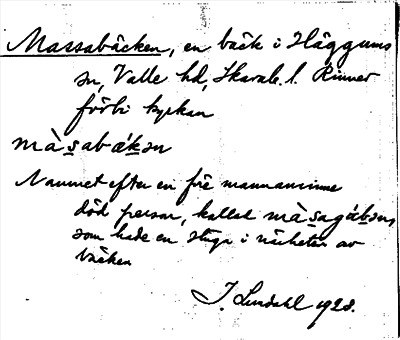 Massabäcken, en bäck i Häggums
sn, Valle hd, Skarab. l. Rinner
förbi kyrkan
màsabäkən
Namnet efter en före mannaminne
död person, kallad
som hade en stuga i närheten av
bäcken
J. Lindahl 1928.